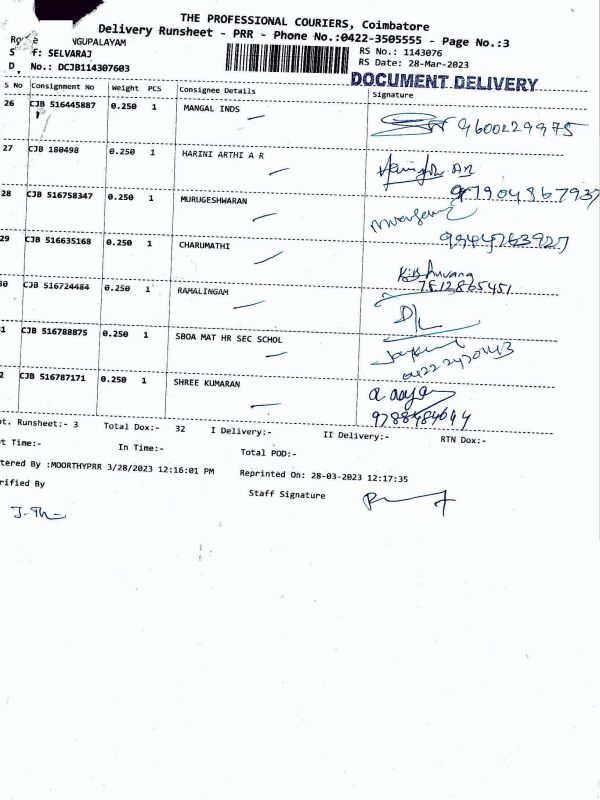 THE PROFESSIONAL COURIERS, Coimbatore
Delivery Runsheet - PRR - Phone No.:0422-3505555 - Page No.:3
NGUPALAYAM
RS No.: 1143076
S f: SELVARAJ
RS Date: 28-Mar-2023
D. No.: DCJB114307603
DOCUMENT DELIVERY
S No Consignment No Weight PCS Consignee Details Signature
26 CJB 516445887 0.250 1 MANGAL INDS
9600229975
27 CJB 180498 0.250 1 HARINI ARTHI A R
28 CJB 516758347 0.250 1 MURUGESHWARAN
29 CJB 516635168 0.250 1 CHARUMATHI
7812865451
30 CJB 516724484 0.250 1 RAMALINGAM
31 CJB 516788875 0.250 1 SBOA MAT HR SEC SCHOL
0422 2470143
32 CJB 516787171 0.250 1 SHREE KUMARAN
9788484644
ot. Runsheet:- 3 Total Dox:- 32 I Delivery:- II Delivery:- RTN Dox:-
t Time:- In Time:- Total POD:-
tered By :MOORTHYPRR 3/28/2023 12:16:01 PM Reprinted On: 28-03-2023 12:17:35
rified By Staff Signature